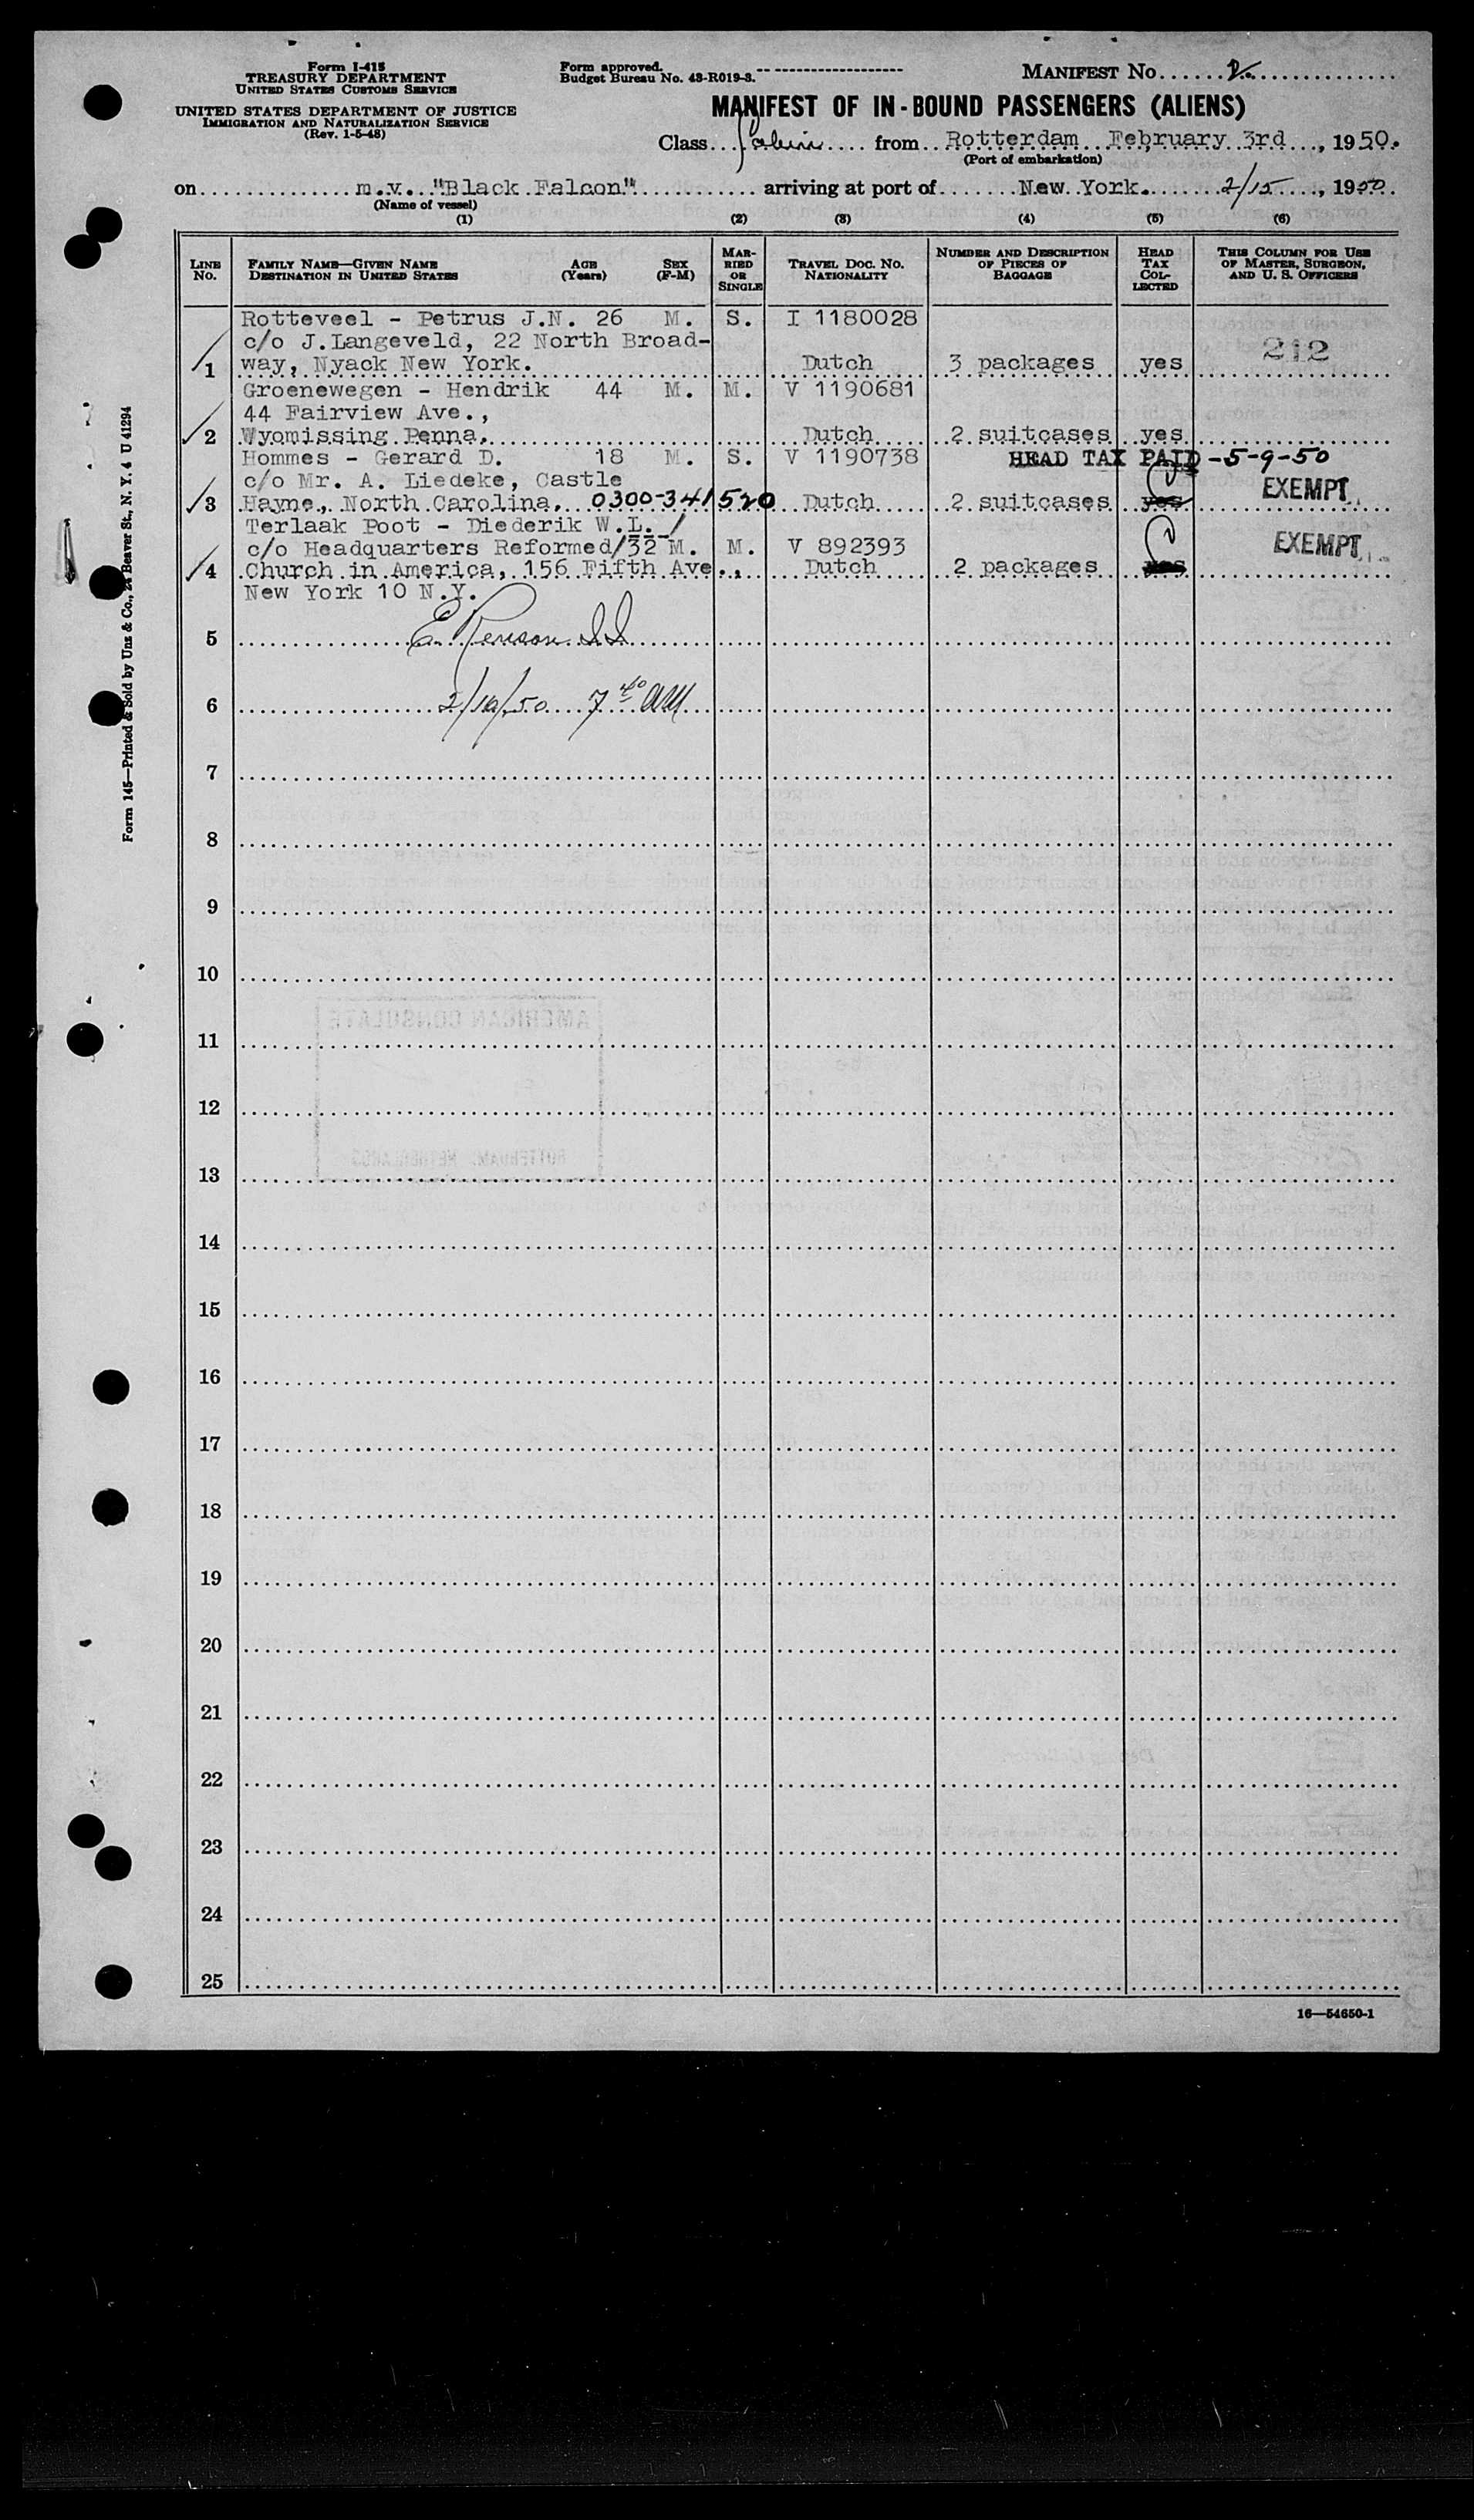 Form I-415
TREASURY DEPARTMENT
UNITED STATES CUSTOMS SERVICE
UNITED STATES DEPARTMENT OF JUSTICE
IMMIGRATION AND NATURALIZATION SERVICE
(Rev. 1-5-48)
Form approved.
Budget Bureau No. 43-R019-3.
MANIFEST No. 2
MANIFEST OF IN-BOUND PASSENGERS (ALIENS)
Class Cabin from Rotterdam February 3rd, 1950.
(Port of embarkation)
on m.v. "Black Falcon" arriving at port of New York. 2/15, 1950
(Name of vessel)
(1) (2) (3) (4) (5) (6)
LINE No. FAMILY NAME—GIVEN NAME DESTINATION IN UNITED STATES AGE (Years) SEX (F-M) MARRIED OR SINGLE TRAVEL DOC. NO. NATIONALITY NUMBER AND DESCRIPTION OF PIECES OF BAGGAGE HEAD TAX COLLECTED THIS COLUMN FOR USE OF MASTER, SURGEON, AND U. S. OFFICERS
Rotteveel - Petrus J.N. 26 M. S. I 1180028
c/o J.Langeveld, 22 North Broad-
1 way, Nyack New York. Dutch 3 packages yes 212
Groenewegen - Hendrik 44 M. M. V 1190681
44 Fairview Ave.,
2 Wyomissing Penna. Dutch 2 suitcases yes
Hommes - Gerard D. 18 M. S. V 1190738 HEAD TAX PAID -5-9-50
c/o Mr. A. Liedeke, Castle
3 Hayne, North Carolina. 0300-341520 Dutch 2 suitcases yes EXEMPT
Terlaak Poot - Diederik W.L. /
c/o Headquarters Reformed/32 M. M. V 892393 EXEMPT
4 Church in America, 156 Fifth Ave., Dutch 2 packages yes
New York 10 N.Y.
5
6 2/16/50 7 40 AM
7
8
9
10
11
12
13
14
15
16
17
18
19
20
21
22
23
24
25
16—54650-1
Form 145—Printed & Sold by Unz & Co., 24 Beaver St., N. Y. 4 U 41294